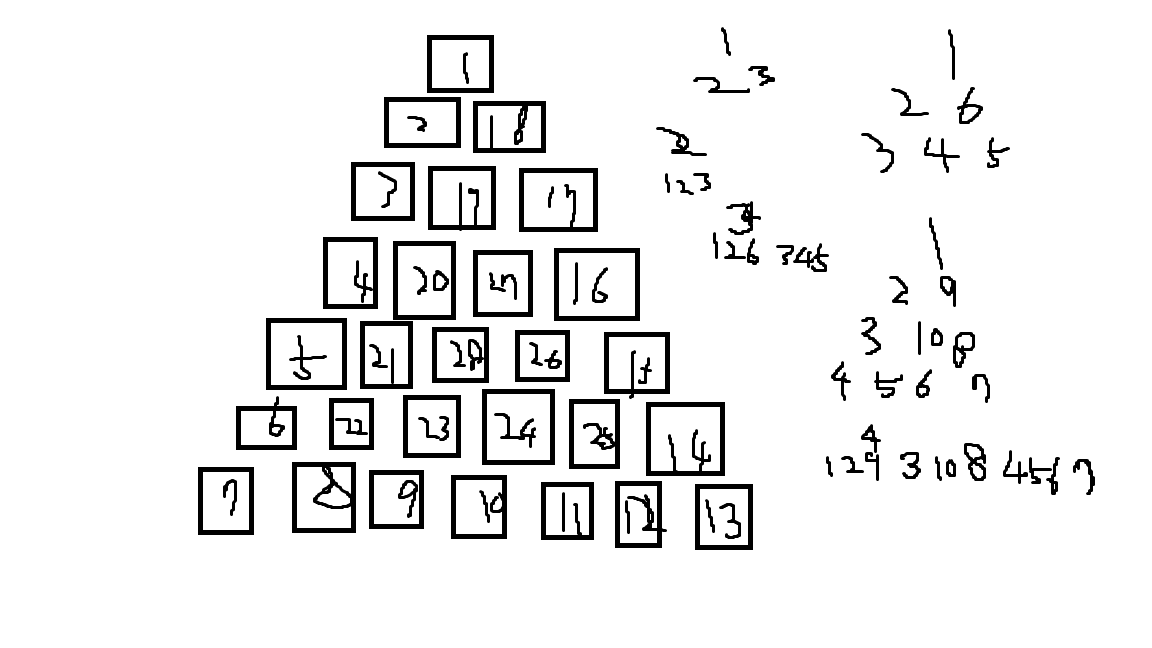 1
2 18
3 19 17
4 20 27 16
5 21 28 26 15
6 22 23 24 25 14
7 8 9 10 11 12 13
1
2 3
2
123
126 345
1
2 6
3 4 5
1
2 9
3 10 8
4 5 6 7
4
129 3 10 8 456 7